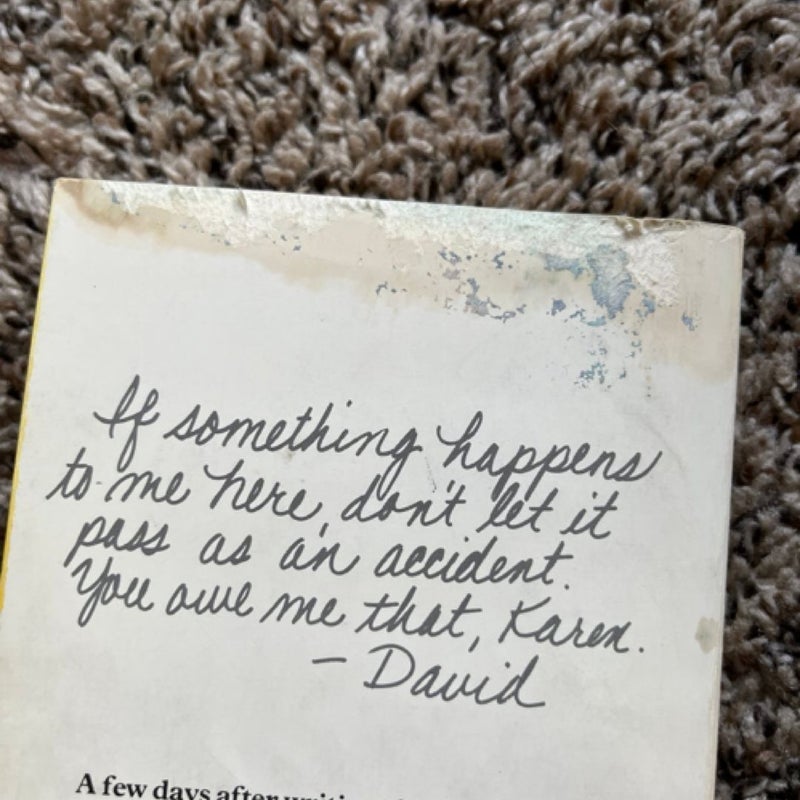 If something happens
to me here, don't let it
pass as an accident.
You owe me that, Karen.
– David
A few days after